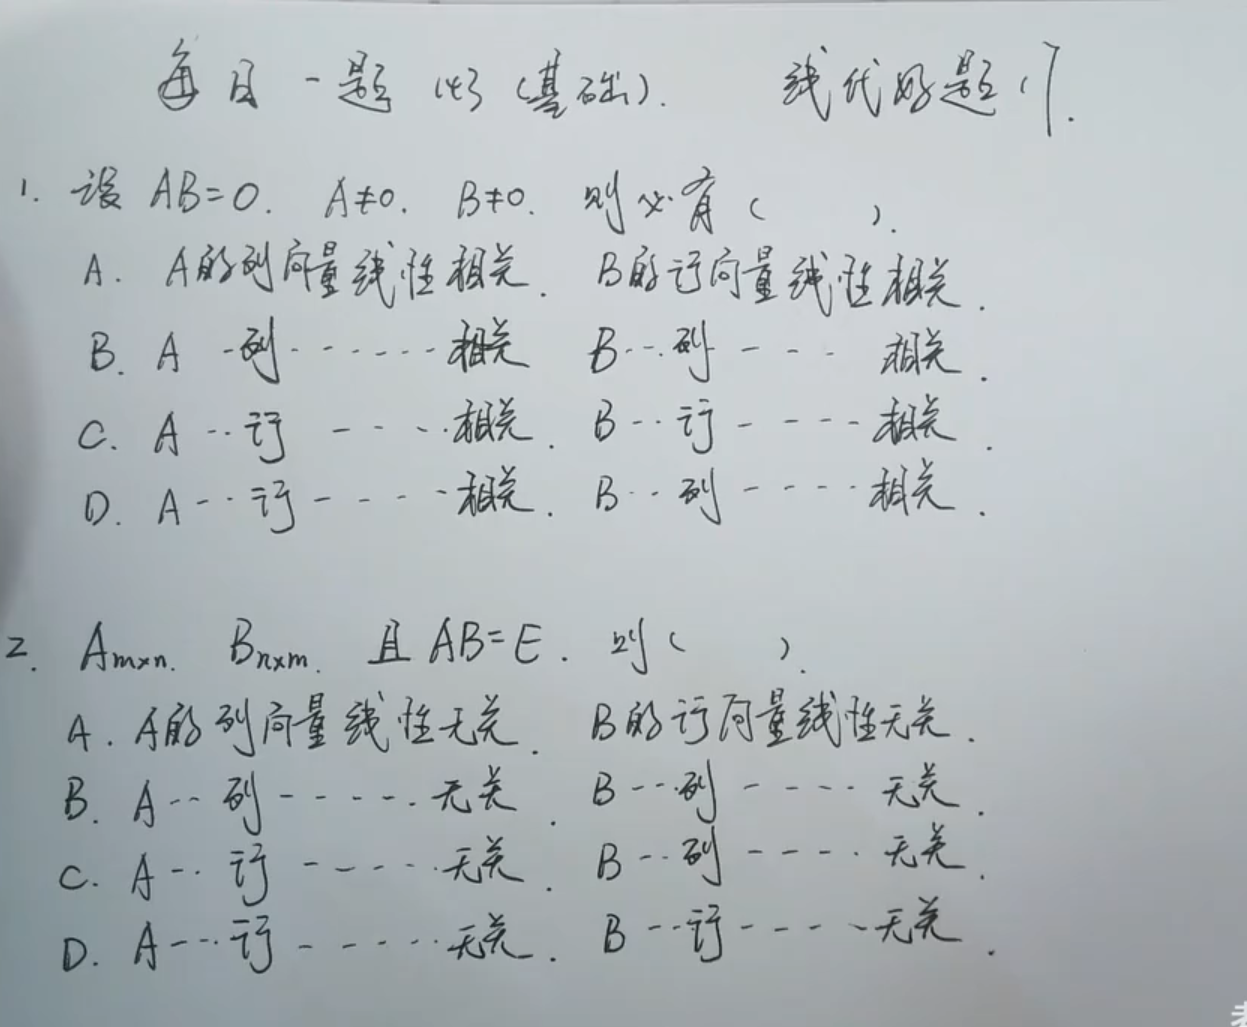 每日一题 (4) (基础). 线代好题
1. 设 AB=0. A≠0. B≠0. 则必有 ( ).
A. A的列向量线性相关. B的行向量线性相关.
B. A -列------相关 B--列--- 相关.
C. A --行 ----相关. B--行----相关.
D. A--行----相关. B--列----相关.
2. Am×n. Bn×m. 且 AB=E. 则 ( ).
A. A的列向量线性无关. B的行向量线性无关.
B. A--列-----无关. B--列----无关.
C. A--行-----无关. B--列----无关.
D. A--行-----无关. B--行----无关.